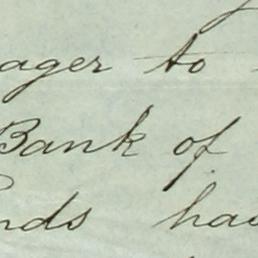 ager to
Bank of
nds ha